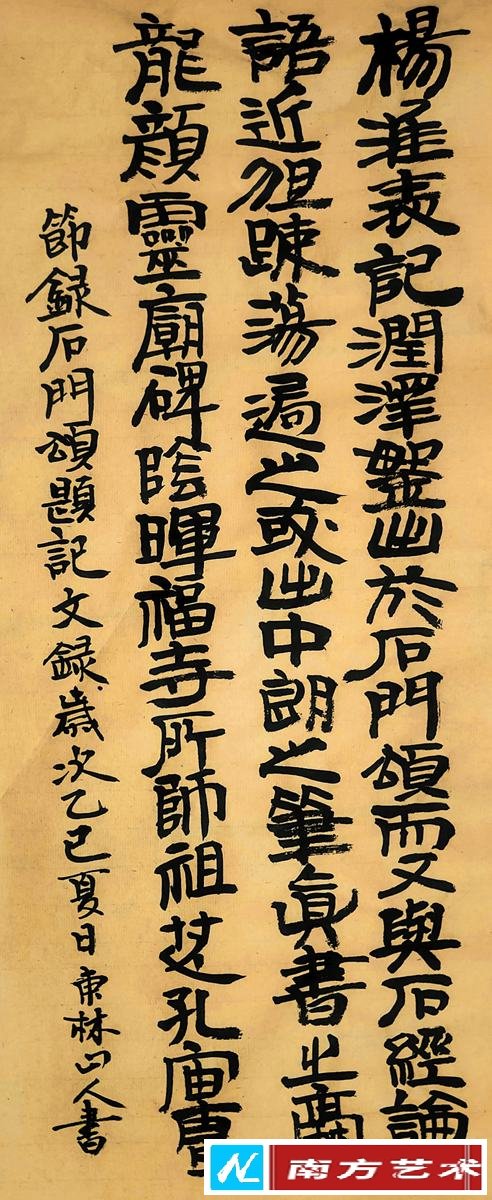 楊淮表記潤澤如玉出於石門頌而又與石經論
語近但疎蕩過之或出中郎之筆真書之
龍顏靈廟碑陰暉福寺所師祖孔宙曹
節録石門頌題記文録歲次乙巳夏日東林山人書
南方艺术